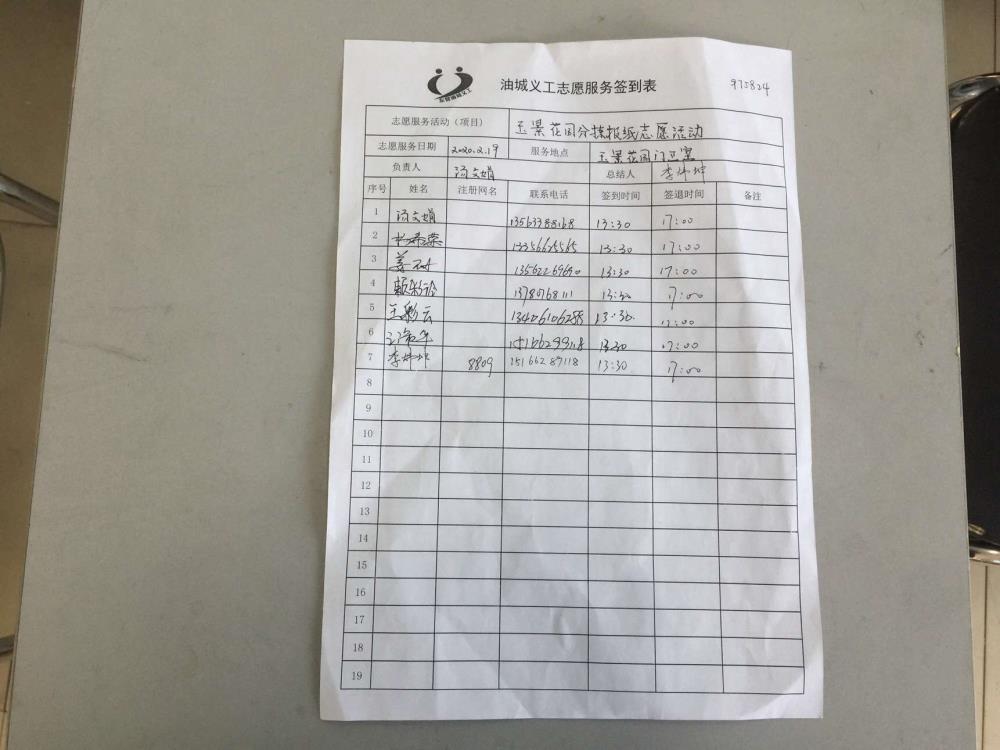 油城义工志愿服务签到表 975824
志愿服务活动（项目） 玉景花园分拣报纸志愿活动
志愿服务日期 2020.2.19 服务地点 玉景花园门卫室
负责人 汤文娟 总结人
序号 姓名 注册网名 联系电话 签到时间 签退时间 备注
1 汤文娟 13563388168 13:30 17:00
2 13:30 17:00
3 13:30 17:00
4 13:30 17:00
5 王彩云 13406106288 13:30 17:00
6 13:30 17:00
7 8809 15166289118 13:30 17:00
8
9
10
11
12
13
14
15
16
17
18
19